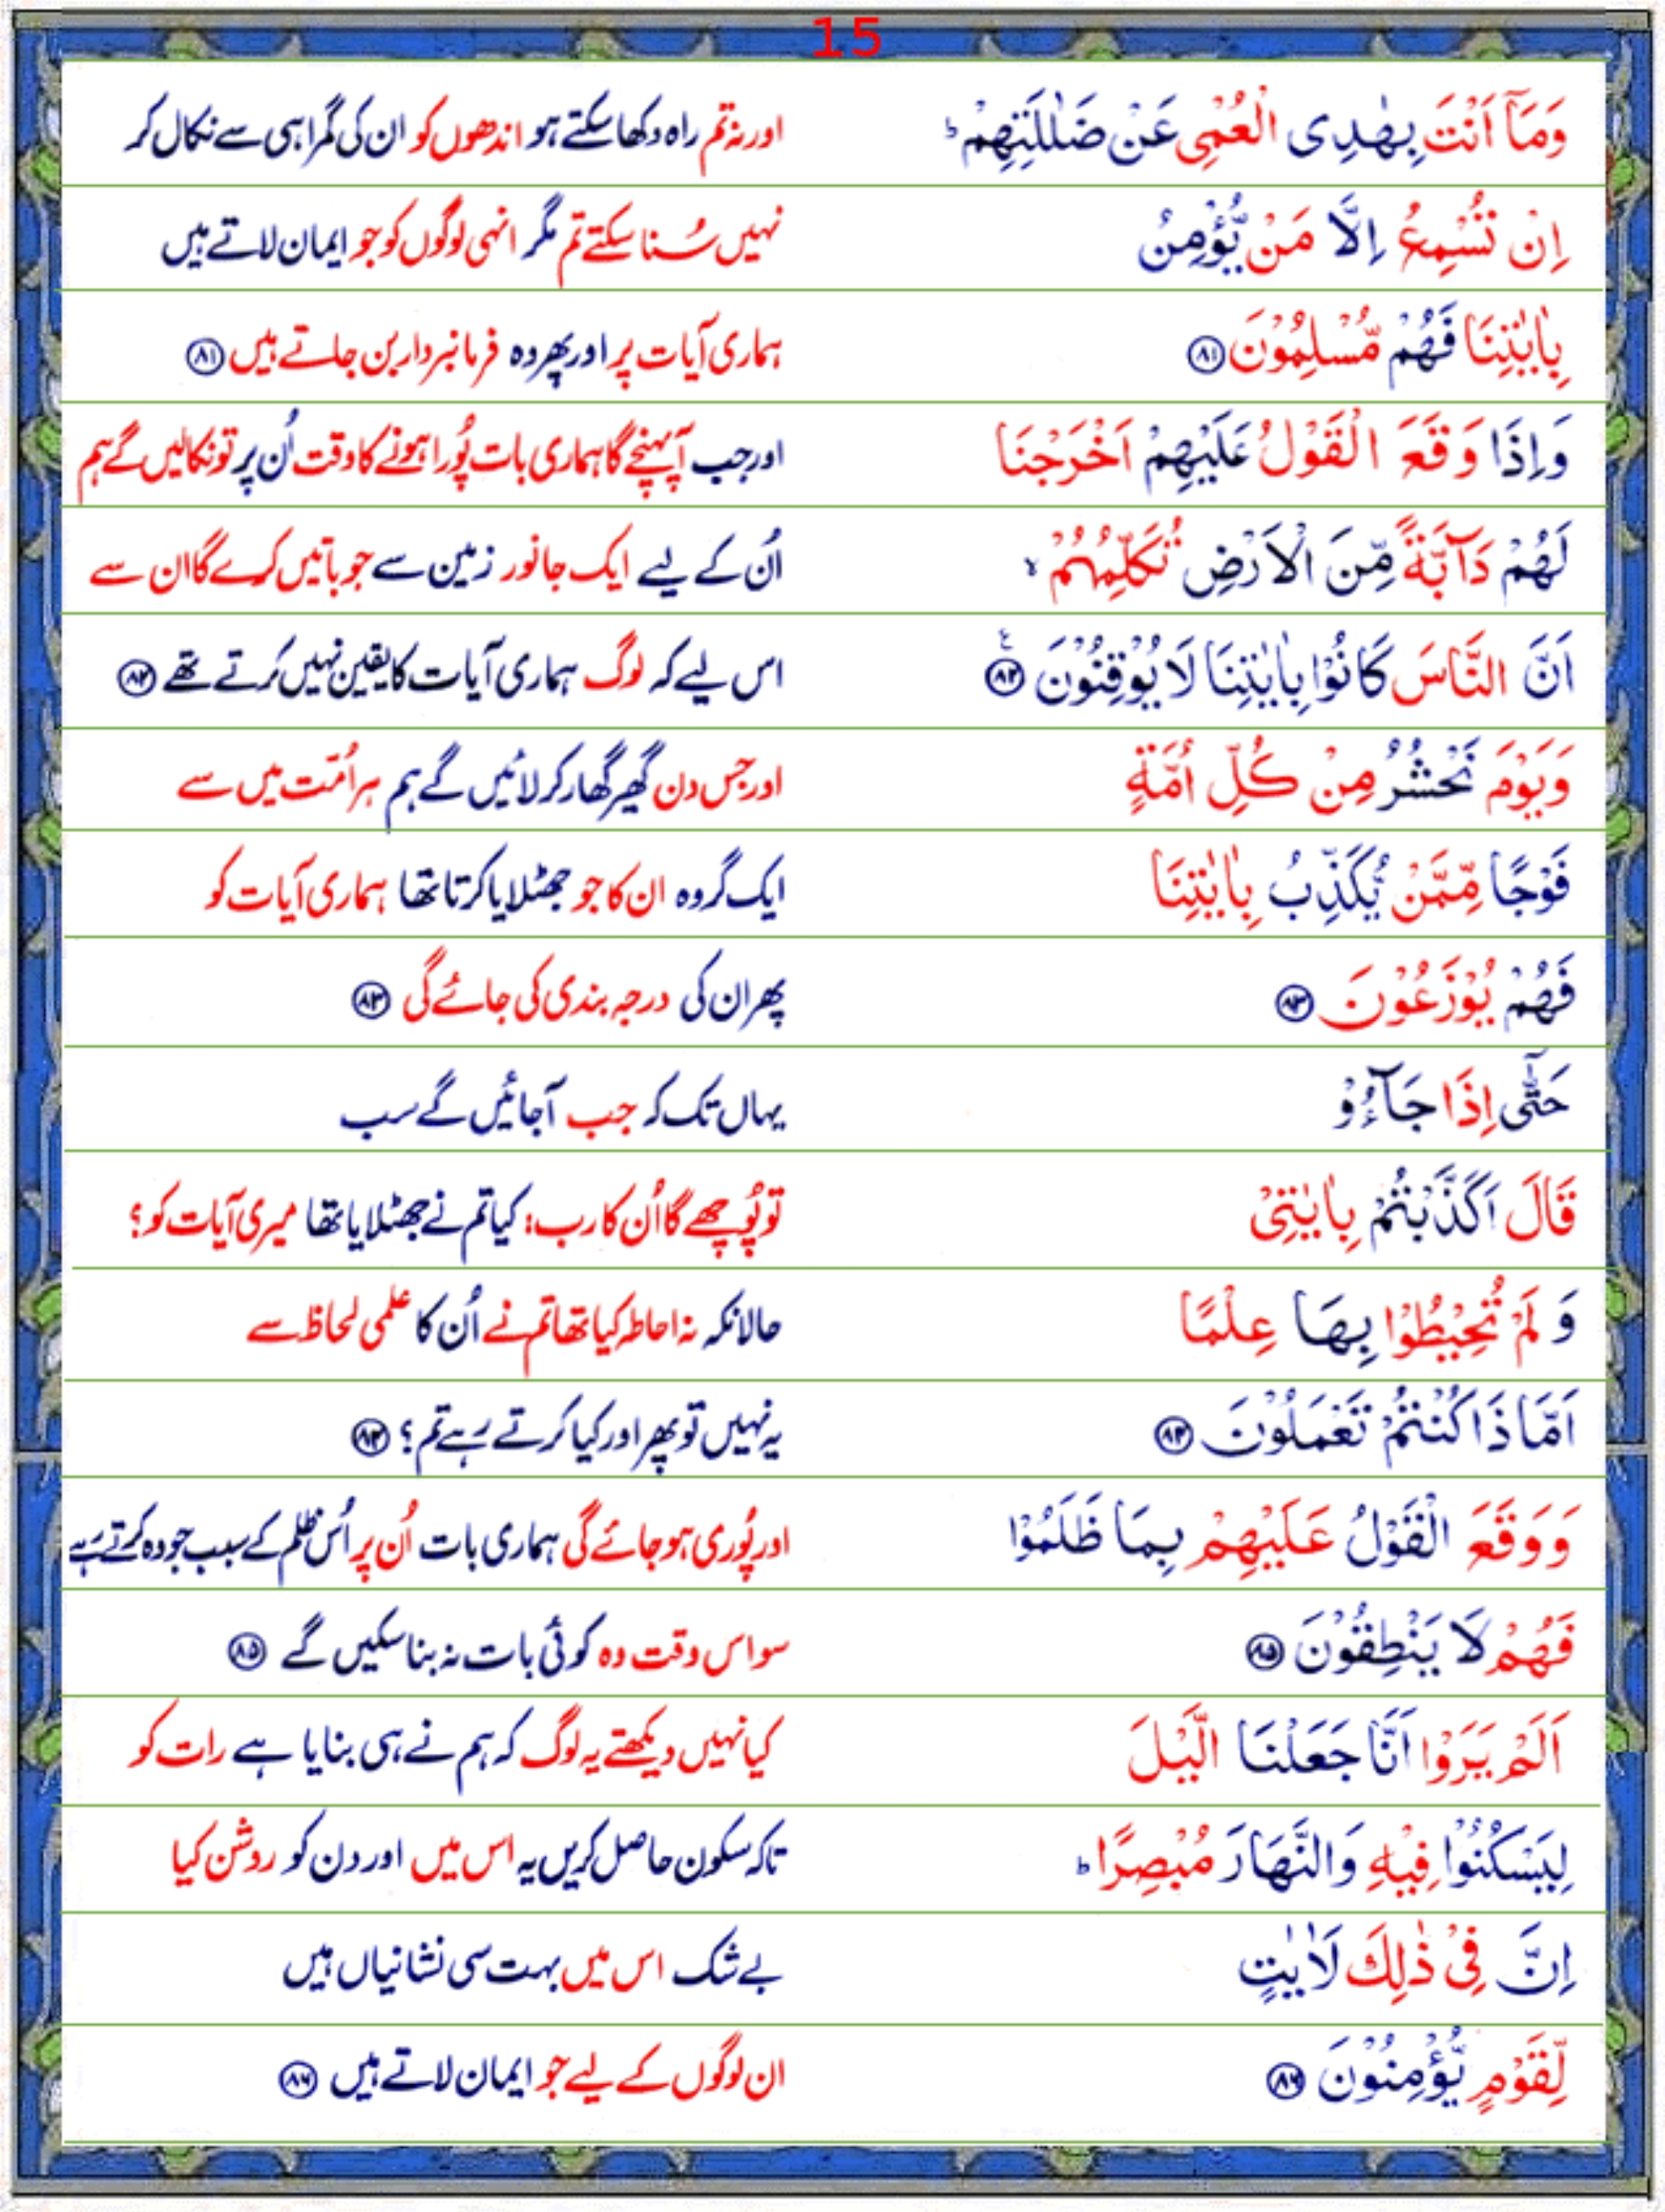 15
وَمَآ اَنْتَ بِهٰدِی الْعُمْیِ عَنْ ضَلٰلَتِهِمْ ؕ اور نہ تم راہ دکھا سکتے ہو اندھوں کو ان کی گمراہی سے نکال کر
اِنْ تُسْمِعُ اِلَّا مَنْ یُّؤْمِنُ نہیں سُنا سکتے تم مگر انہی لوگوں کو جو ایمان لاتے ہیں
بِاٰیٰتِنَا فَهُمْ مُّسْلِمُوْنَ ﴿۸۱﴾ ہماری آیات پر اور پھر وہ فرمانبردار بن جاتے ہیں ﴿۸۱﴾
وَاِذَا وَقَعَ الْقَوْلُ عَلَیْهِمْ اَخْرَجْنَا اور جب آپہنچے گا ہماری بات پُورا ہونے کا وقت اُن پر تو نکالیں گے ہم
لَهُمْ دَآبَّةً مِّنَ الْاَرْضِ تُكَلِّمُهُمْ ۙ اُن کے لیے ایک جانور زمین سے جو باتیں کرے گا ان سے
اَنَّ النَّاسَ كَانُوْا بِاٰیٰتِنَا لَا یُوْقِنُوْنَ ﴿۸۲﴾ ع اس لیے کہ لوگ ہماری آیات کا یقین نہیں کرتے تھے ﴿۸۲﴾
وَیَوْمَ نَحْشُرُ مِنْ كُلِّ اُمَّةٍ اور جس دن گھیر گھار کر لائیں گے ہم ہر اُمّت میں سے
فَوْجًا مِّمَّنْ یُّكَذِّبُ بِاٰیٰتِنَا ایک گروہ ان کا جو جھٹلایا کرتا تھا ہماری آیات کو
فَهُمْ یُوْزَعُوْنَ ﴿۸۳﴾ پھر ان کی درجہ بندی کی جائے گی ﴿۸۳﴾
حَتّٰۤی اِذَا جَآءُوْ یہاں تک کہ جب آجائیں گے سب
قَالَ اَكَذَّبْتُمْ بِاٰیٰتِیْ تو پُوچھے گا اُن کا رب: کیا تم نے جھٹلایا تھا میری آیات کو؟
وَ لَمْ تُحِیْطُوْا بِهَا عِلْمًا حالانکہ نہ احاطہ کیا تھا تم نے اُن کا علمی لحاظ سے
اَمَّا ذَا كُنْتُمْ تَعْمَلُوْنَ ﴿۸۴﴾ یہ نہیں تو پھر اور کیا کرتے رہے تم؟ ﴿۸۴﴾
وَوَقَعَ الْقَوْلُ عَلَیْهِمْ بِمَا ظَلَمُوْا اور پُوری ہوجائے گی ہماری بات اُن پر اُس ظلم کے سبب جو وہ کرتے رہے
فَهُمْ لَا یَنْطِقُوْنَ ﴿۸۵﴾ سو اس وقت وہ کوئی بات نہ بنا سکیں گے ﴿۸۵﴾
اَلَمْ یَرَوْا اَنَّا جَعَلْنَا الَّیْلَ کیا نہیں دیکھتے یہ لوگ کہ ہم نے ہی بنایا ہے رات کو
لِیَسْكُنُوْا فِیْهِ وَالنَّهَارَ مُبْصِرًا ؕ تاکہ سکون حاصل کریں یہ اس میں اور دن کو روشن کیا
اِنَّ فِیْ ذٰلِكَ لَاٰیٰتٍ بے شک اس میں بہت سی نشانیاں ہیں
لِّقَوْمٍ یُّؤْمِنُوْنَ ﴿۸۶﴾ ان لوگوں کے لیے جو ایمان لاتے ہیں ﴿۸۶﴾